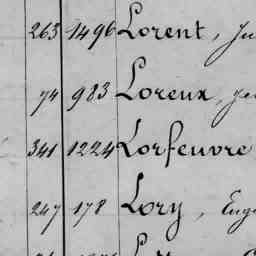 263 1496 Lorent, Ju
74 983 Loreux, Je
341 1224 Lorfeuvre
247 178 Lory, Eug